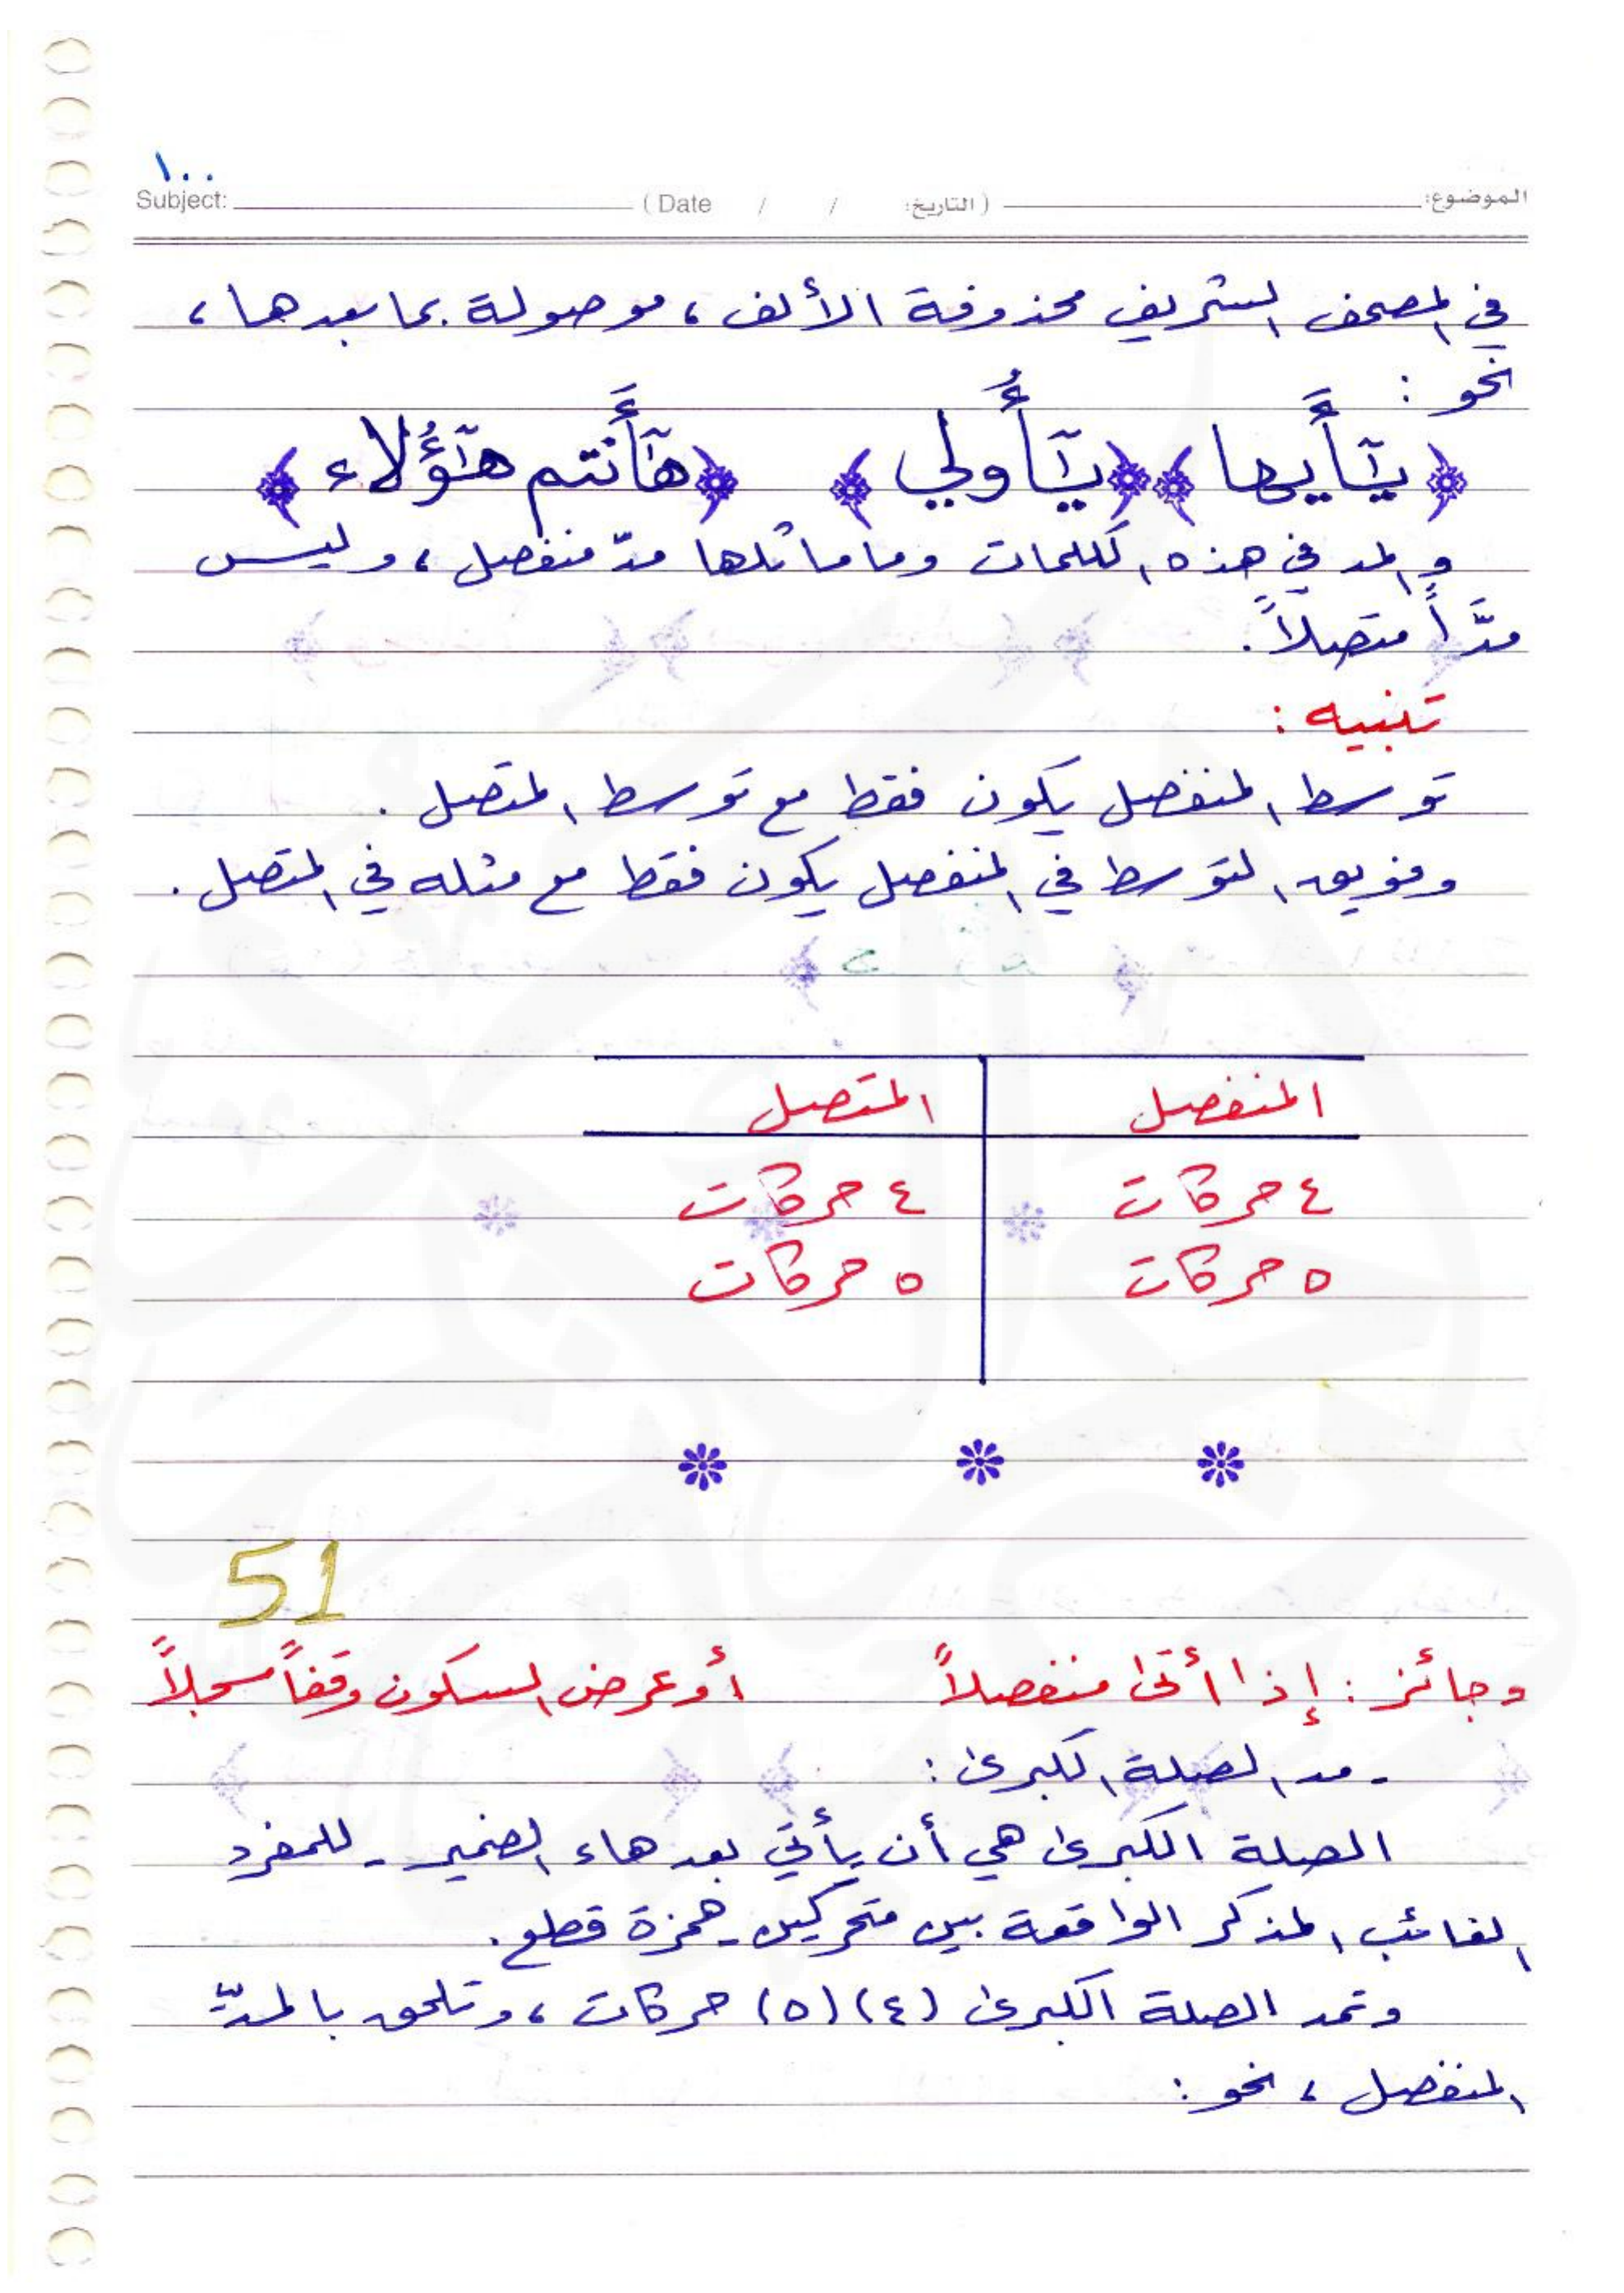 ١٠٠
Subject: ( Date / / التاريخ: ) الموضوع:
في المصحف الشريف محذوفة الألف ، موصولة بما بعدها ،
نحو :
﴿ يَٰٓأَيها ﴾ ﴿ يَٰٓأُولي ﴾ ﴿ هَٰٓأَنتم هَٰٓؤُلاء ﴾
والمد في هذه الكلمات وما ماثلها مدّ منفصل ، وليس
مدَّاً متصلاً .
تنبيه :
توسط المنفصل يكون فقط مع توسط المتصل .
وفويق التوسط في المنفصل يكون فقط مع مثله في المتصل .
المنفصل المتصل
٤ حركات ٤ حركات
٥ حركات ٥ حركات
51
وجائز : إذا أتى منفصلاً أو عرض السكون وقفاً مسجلاً
- مد الصلة الكبرى :
الصلة الكبرى هي أن يأتي بعد هاء الضمير - للمفرد
الغائب المذكر الواقعة بين متحركين - همزة قطع .
وتمد الصلة الكبرى (٤) (٥) حركات ، وتلحق بالمدّ
المنفصل ، نحو :